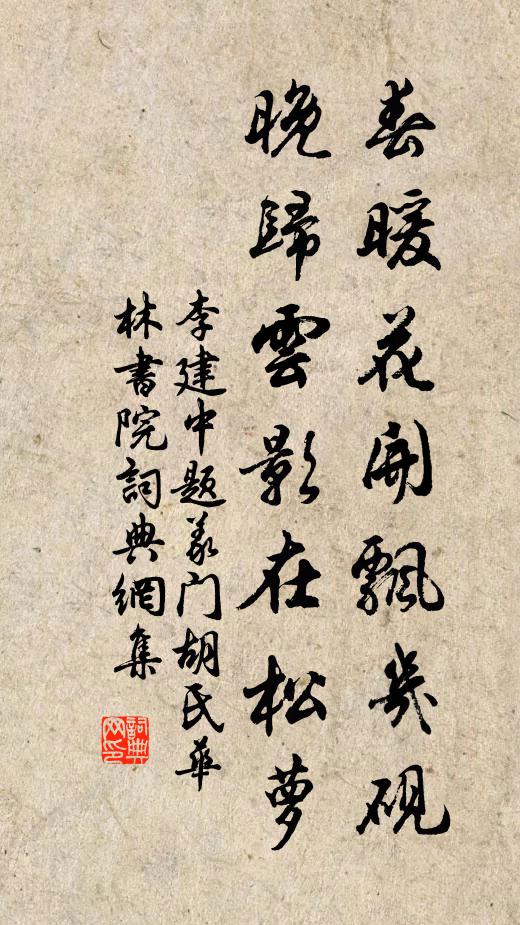 春暖花開飄几硯
晚歸雲影在松萝
李建中题义门胡氏華
林書院詞典網集
詞典
网印